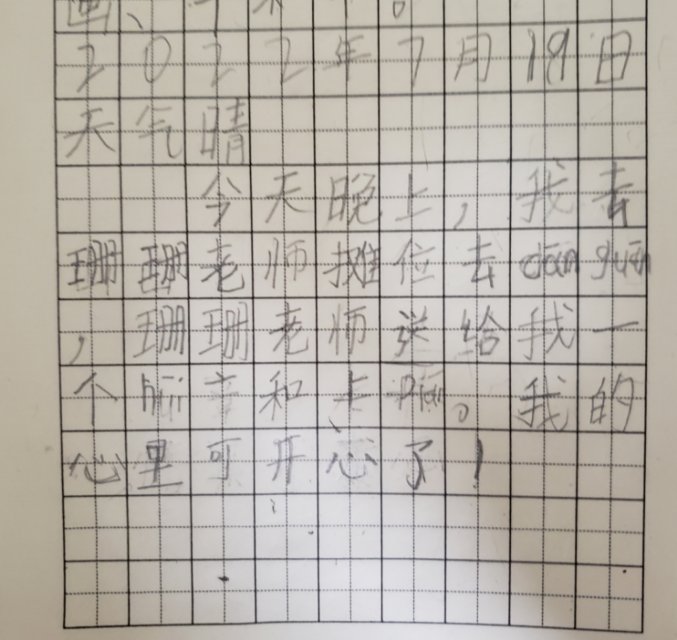 2022年7月19日
天气晴
今天晚上，我去
珊珊老师摊位去cānguān
，珊珊老师送给我一
个 和卡piàn。我的
心里可开心了！